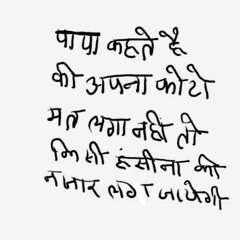 पापा कहते है
की अपना फोटो
मत लगा नही तो
किसी हसीना की
नजार लग जायेगी